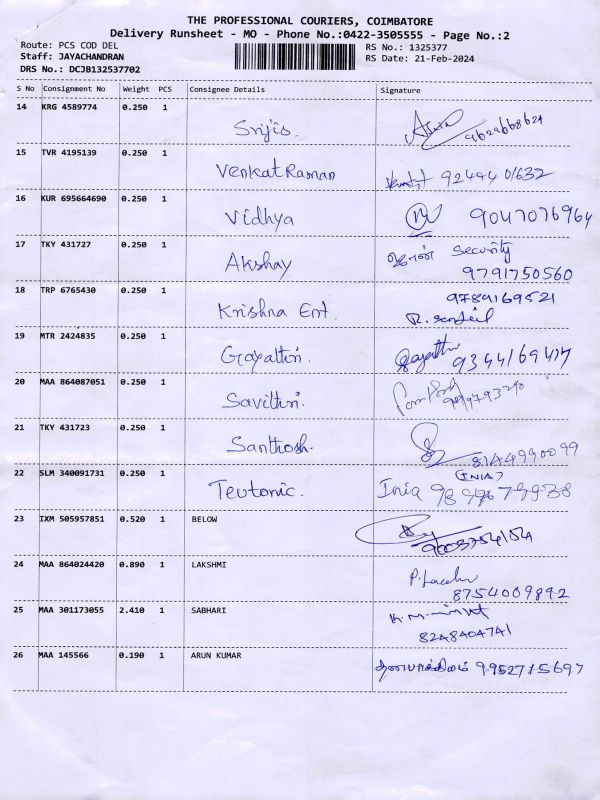 THE PROFESSIONAL COURIERS, COIMBATORE
Delivery Runsheet - MO - Phone No.:0422-3505555 - Page No.:2
Route: PCS COD DEL
RS No.: 1325377
Staff: JAYACHANDRAN
RS Date: 21-Feb-2024
DRS No.: DCJB132537702
S No Consignment No Weight PCS Consignee Details Signature
14 KRG 4589774 0.250 1
Srijis.
15 TVR 4195139 0.250 1
Venkat Raman 9244401632
16 KUR 695664690 0.250 1
Vidhya 9047076964
17 TKY 431727 0.250 1
Akshay Security
9791750560
18 TRP 6765430 0.250 1 9789169521
Krishna Ent. R. Senthil
19 MTR 2424835 0.250 1
Gayathri. Gayathri 9344169417
20 MAA 864087051 0.250 1
Savithri.
21 TKY 431723 0.250 1
Santhosh. 8144990099
22 SLM 340091731 0.250 1 (INIA)
Teutonic. Inia
23 IXM 505957851 0.520 1 BELOW
9003754154
24 MAA 864024420 0.890 1 LAKSHMI
8754009892
25 MAA 301173055 2.410 1 SABHARI
8248404741
26 MAA 145566 0.190 1 ARUN KUMAR 9952715697